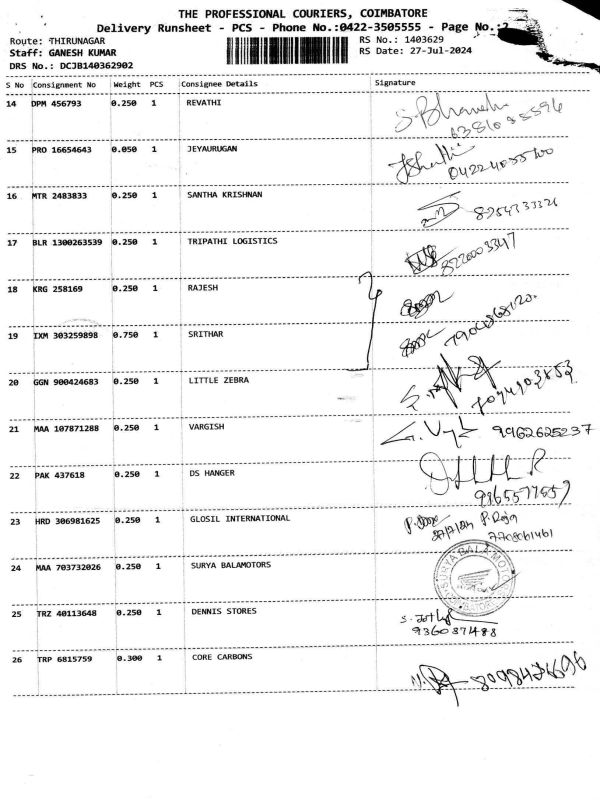 THE PROFESSIONAL COURIERS, COIMBATORE
Delivery Runsheet - PCS - Phone No.:0422-3505555 - Page No.:2
Route: THIRUNAGAR
RS No.: 1403629
Staff: GANESH KUMAR
RS Date: 27-Jul-2024
DRS No.: DCJB140362902
S No Consignment No Weight PCS Consignee Details Signature
14 DPM 456793 0.250 1 REVATHI
15 PRO 16654643 0.050 1 JEYAURUGAN
16 MTR 2483833 0.250 1 SANTHA KRISHNAN
17 BLR 1300263539 0.250 1 TRIPATHI LOGISTICS
8220003347
18 KRG 258169 0.250 1 RAJESH
19 IXM 303259898 0.750 1 SRITHAR
20 GGN 900424683 0.250 1 LITTLE ZEBRA
21 MAA 107871288 0.250 1 VARGISH
9962625237
22 PAK 437618 0.250 1 DS HANGER
23 HRD 306981625 0.250 1 GLOSIL INTERNATIONAL
27/7/24 P. Raja
7708061461
24 MAA 703732026 0.250 1 SURYA BALAMOTORS
SURYA BALA MOTO
25 TRZ 40113648 0.250 1 DENNIS STORES
9360371488
26 TRP 6815759 0.300 1 CORE CARBONS